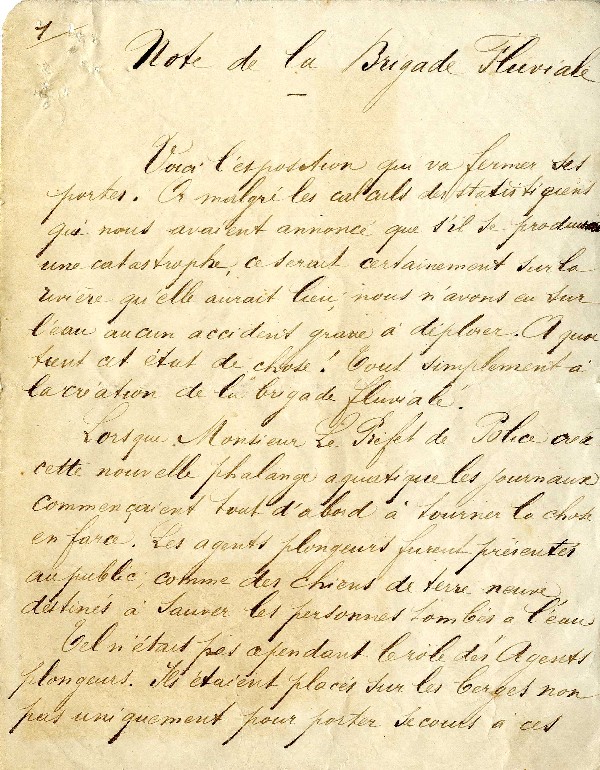 1
Note de la Brigade Fluviale
Voici l'exposition qui va fermer ses
portes. Or malgré les calculs des statistiques
qui nous avaient annoncé que s'il se produisait
une catastrophe, ce serait certainement sur la
rivière qu'elle aurait lieu, nous n'avons eu sur
l'eau aucun accident grave à déplorer. A quoi
tient cet état de chose! Tout simplement à
la création de la brigade fluviale.
Lorsque Monsieur Le Préfet de Police créa
cette nouvelle phalange aquatique les journaux
commençaient tout d'abord à tourner la chose
en farce. Les agents plongeurs furent présentés
au public, comme des chiens de terre neuve
destinés à sauver les personnes tombés à l'eau
Tel n'étais pas cependant le rôle des Agents
plongeurs. Ils étaient placés sur les berges non
pas uniquement pour porter secours à ces